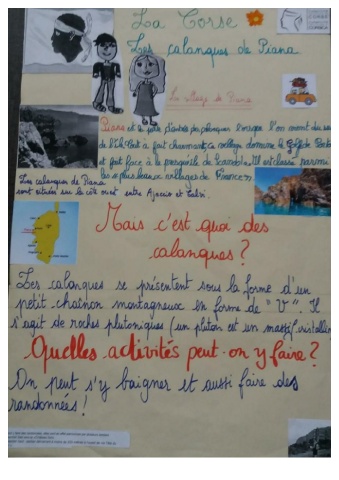 La Corse
Les calanques de Piana
Le village de Piana
Piana est
l'on mont du
de l'Île fait charmant, ce village domine le Golfe de
et fait face à la presqu'île de Scandola. Il est classé parmi
les « plus beaux villages de France ».
Les calanques de Piana
sont situées sur la côte ouest entre Ajaccio et Calvi.
Mais c'est quoi des
calanques ?
Les calanques se présentent sous la forme d'un
petit chaînon montagneux en forme de "V". Il
s'agit de roches plutoniques (un pluton est un massif cristallin
Quelles activités peut-on y faire ?
On peut s'y baigner et aussi faire des
randonnées !